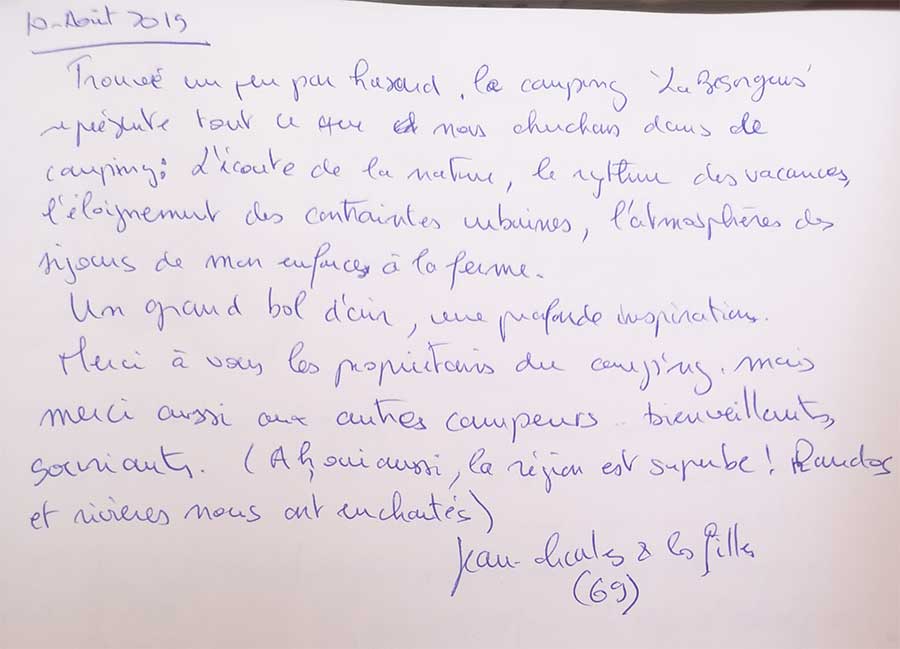 10-Août 2019
Trouvé un peu par hasard, le camping "La Besorgues"
représente tout ce que nous cherchons dans de
camping: L'écoute de la nature, le rythme des vacances,
l'éloignement des contraintes urbaines, l'atmosphères des
séjours de mon enfance à la ferme.
Un grand bol d'air, une profonde inspiration.
Merci à vous les propriétaires du camping, mais
merci aussi aux autres campeurs bienveillants,
souriants. (Ah, oui aussi, la région est superbe! Randos
et rivières nous ont enchantés)
Jean-Charles & les filles
(69)